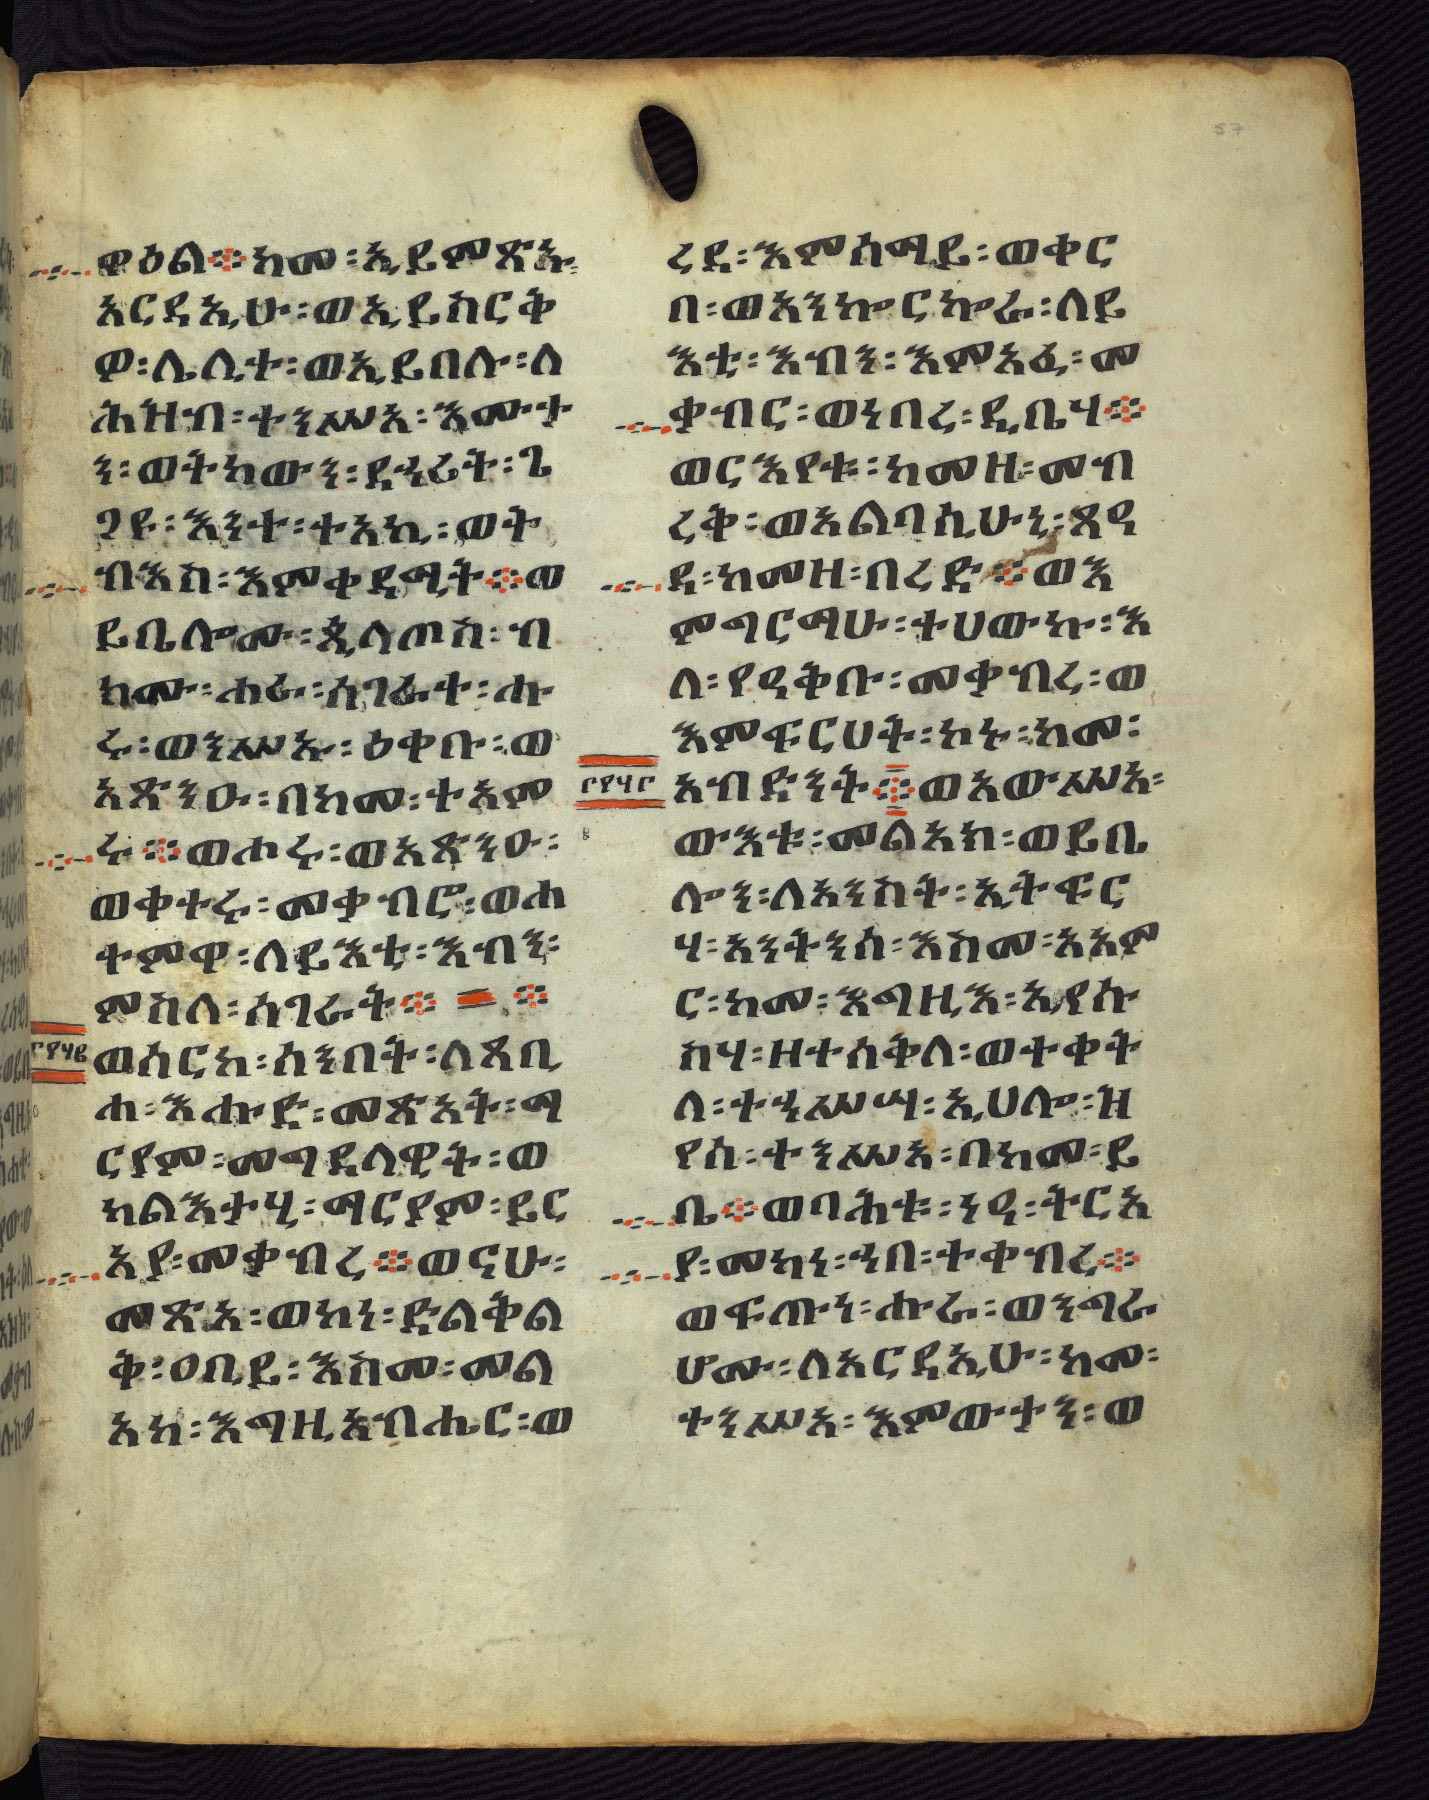 ዋዕል ፨ ከመ ፡ ኢይምጽኡ ፡
አርዳኢሁ ፡ ወኢይስርቅ
ዎ ፡ ሌሊተ ፡ ወኢይበሉ ፡ ለ
ሕዝብ ፡ ተንሥአ ፡ እሙታ
ን ፡ ወትከውን ፡ ደኃሪት ፡ ጌ
ጋዮ ፡ እንተ ፡ ተአኪ ፡ ወት
ብእስ ፡ እምቀዳሚት ፨ ወ
ይቤሎሙ ፡ ጲላጦስ ፡ ብ
ክሙ ፡ ሐራ ፡ ሰገራተ ፡ ሑ
ሩ ፡ ወንሥኡ ፡ ዕቀቡ ፡ ወ
አጽንዑ ፡ በከመ ፡ ተአም
ሩ ፨ ወሐሩ ፡ ወአጽንዑ ፡
ወቀተሩ ፡ መቃብሮ ፡ ወሐ
ተምዋ ፡ ለይእቲ ፡ እብን ፡
ምስለ ፡ ሰገራት ፨ ፨
፫፻፶፪
ወሰርከ ፡ ሰንበት ፡ ለጸቢ
ሐ ፡ እሑድ ፡ መጽአት ፡ ማ
ርያም ፡ መግደላዊት ፡ ወ
ካልእታሂ ፡ ማርያም ፡ ይር
አያ ፡ መቃብረ ፨ ወናሁ ፡
መጽአ ፡ ወኮነ ፡ ድልቅል
ቅ ፡ ዐቢይ ፡ እስመ ፡ መል
አከ ፡ እግዚአብሔር ፡ ወ
ረደ ፡ እምሰማይ ፡ ወቀር
በ ፡ ወአንኰርኰራ ፡ ለይ
እቲ ፡ እብን ፡ እምአፈ ፡ መ
ቃብር ፡ ወነበረ ፡ ዲቤሃ ፨
ወርእየቱ ፡ ከመዘ ፡ መብ
ረቅ ፡ ወአልባሲሁኒ ፡ ጸዓ
ዳ ፡ ከመዘ ፡ በረድ ፨ ወእ
ምግርማሁ ፡ ተሀውኩ ፡ እ
ለ ፡ የዓቅቡ ፡ መቃብረ ፡ ወ
እምፍርሀት ፡ ኮኑ ፡ ከመ ፡
፫፻፶፫
አብድንት ፨ ወአውሥአ ፡
ውእቱ ፡ መልአክ ፡ ወይቤ
ሎን ፡ ለአንስት ፡ ኢትፍር
ሃ ፡ አንትንሰ ፡ እስመ ፡ አአም
ር ፡ ከመ ፡ እግዚእ ፡ ኢየሱ
ስሃ ፡ ዘተሰቅለ ፡ ወተቀት
ለ ፡ ተኃሥሣ ፡ ኢሀሎ ፡ ዝ
የሰ ፡ ተንሥአ ፡ በከመ ፡ ይ
ቤ ፨ ወባሕቱ ፡ ንዓ ፡ ትርአ
ያ ፡ መካነ ፡ ኀበ ፡ ተቀብረ ፨
ወፍጡነ ፡ ሑራ ፡ ወንግራ
ሆሙ ፡ ለአርዳኢሁ ፡ ከመ ፡
ተንሥአ ፡ እምውታን ፡ ወ